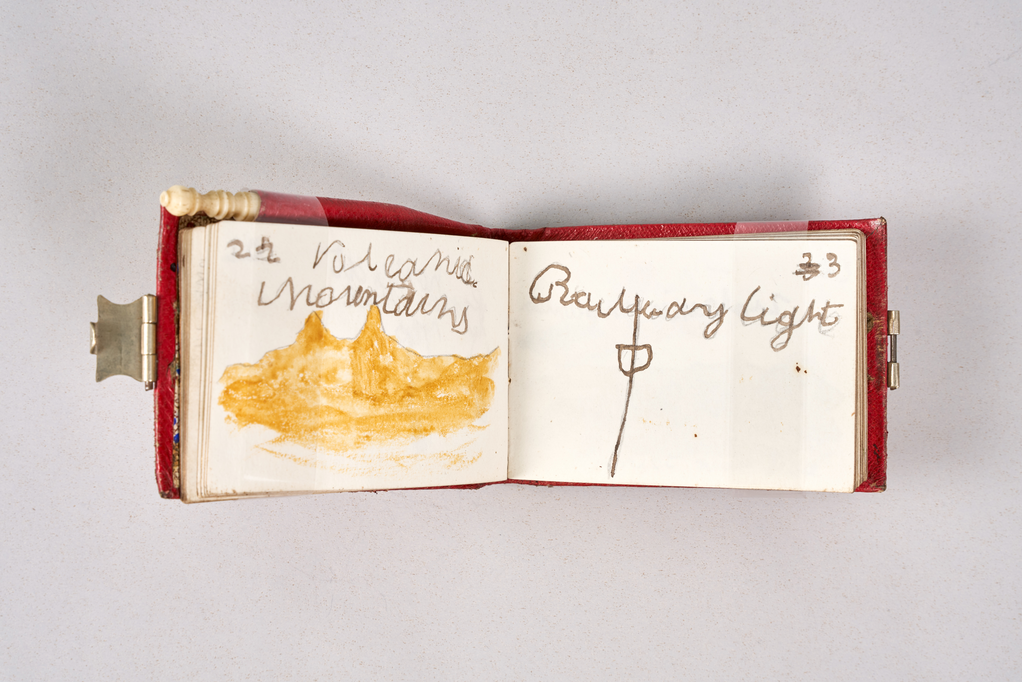 22
Volcanic
Mountains
23
Railway light